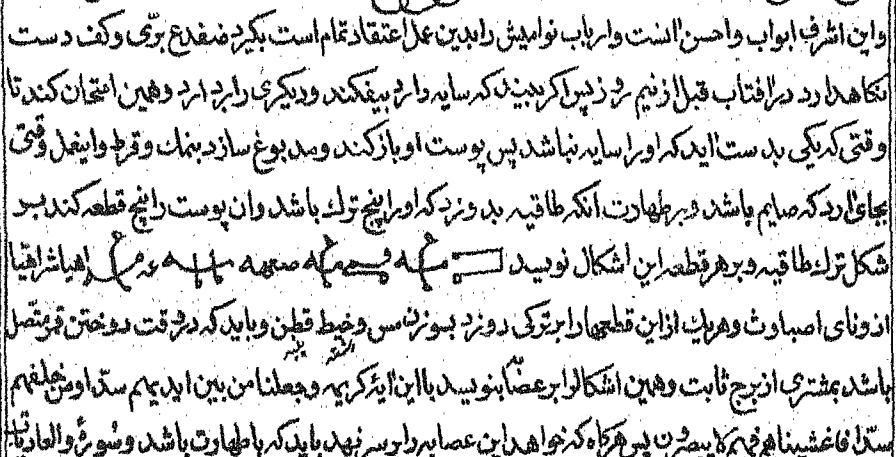 واین اشرف ابواب و احسن آنست وارباب نوامیش را بدین عمل اعتقاد تمام است بکیرد ضفدع برّی و کف دست
نکاهدارد در افتاب قبل از نیم روز پس اکر بیند که سایه دارد بیفکند و دیکری را بردارد و همین امتحان کند تا
وقتی که یکی بدست آید که اورا سایه نباشد پس پوست او باز کند و مدبوغ سازد بنمك و قرط و اینعمل وقتی
بجای آرد که صایم باشد و بر طهارت آنکه طاقیه بدوزد که اورا پنج ترك باشد وان پوست را پنج قطعه کند بر
شکل ترك طاقیه و بر هر قطعه این اشکال نویسد اهیا شراهیا
ازونای اصباوث و هریك از این قطعها را بر ترکی دوزد بسوزن مس و خیط قطن و باید که در وقت دوختن قمر متّصل
باشد بمشتری از برج ثابت و همین اشکال را بر عصّابه بنویسد با این آیهٔ کریمه وجعلنا من بین ایدیهم سدّا ومن خلفهم
سدّا فاغشیناهم فهم لا یبصرون پس هرکاه که خواهد این عصابه را بر سر نهد باید که با طهارت باشد و سورهٔ والعادیات